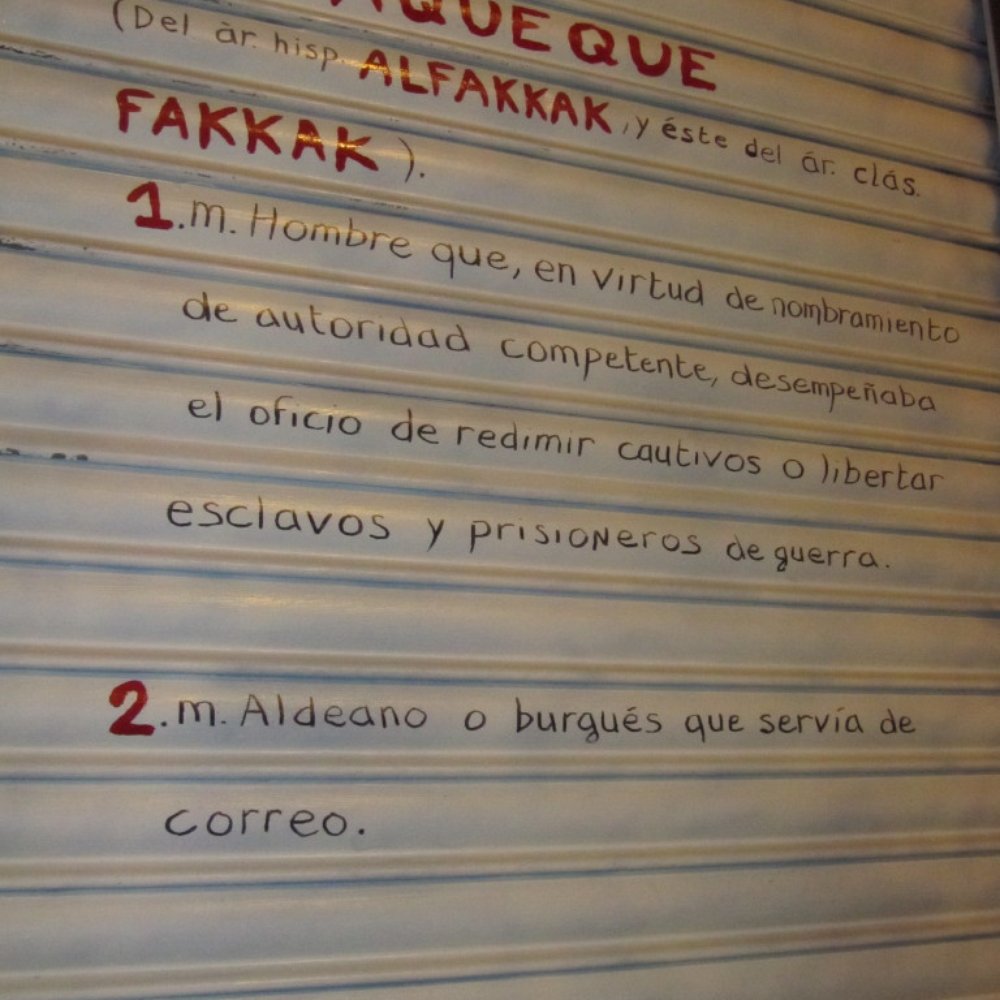 AQUEQUE
(Del àr. hisp. ALFAKKAK, y éste del ár. clás.
FAKKAK).
1.m. Hombre que, en virtud de nombramiento
de autoridad competente, desempeñaba
el oficio de redimir cautivos o libertar
esclavos y prisioneros de guerra.
2.m. Aldeano o burgués que servía de
correo.